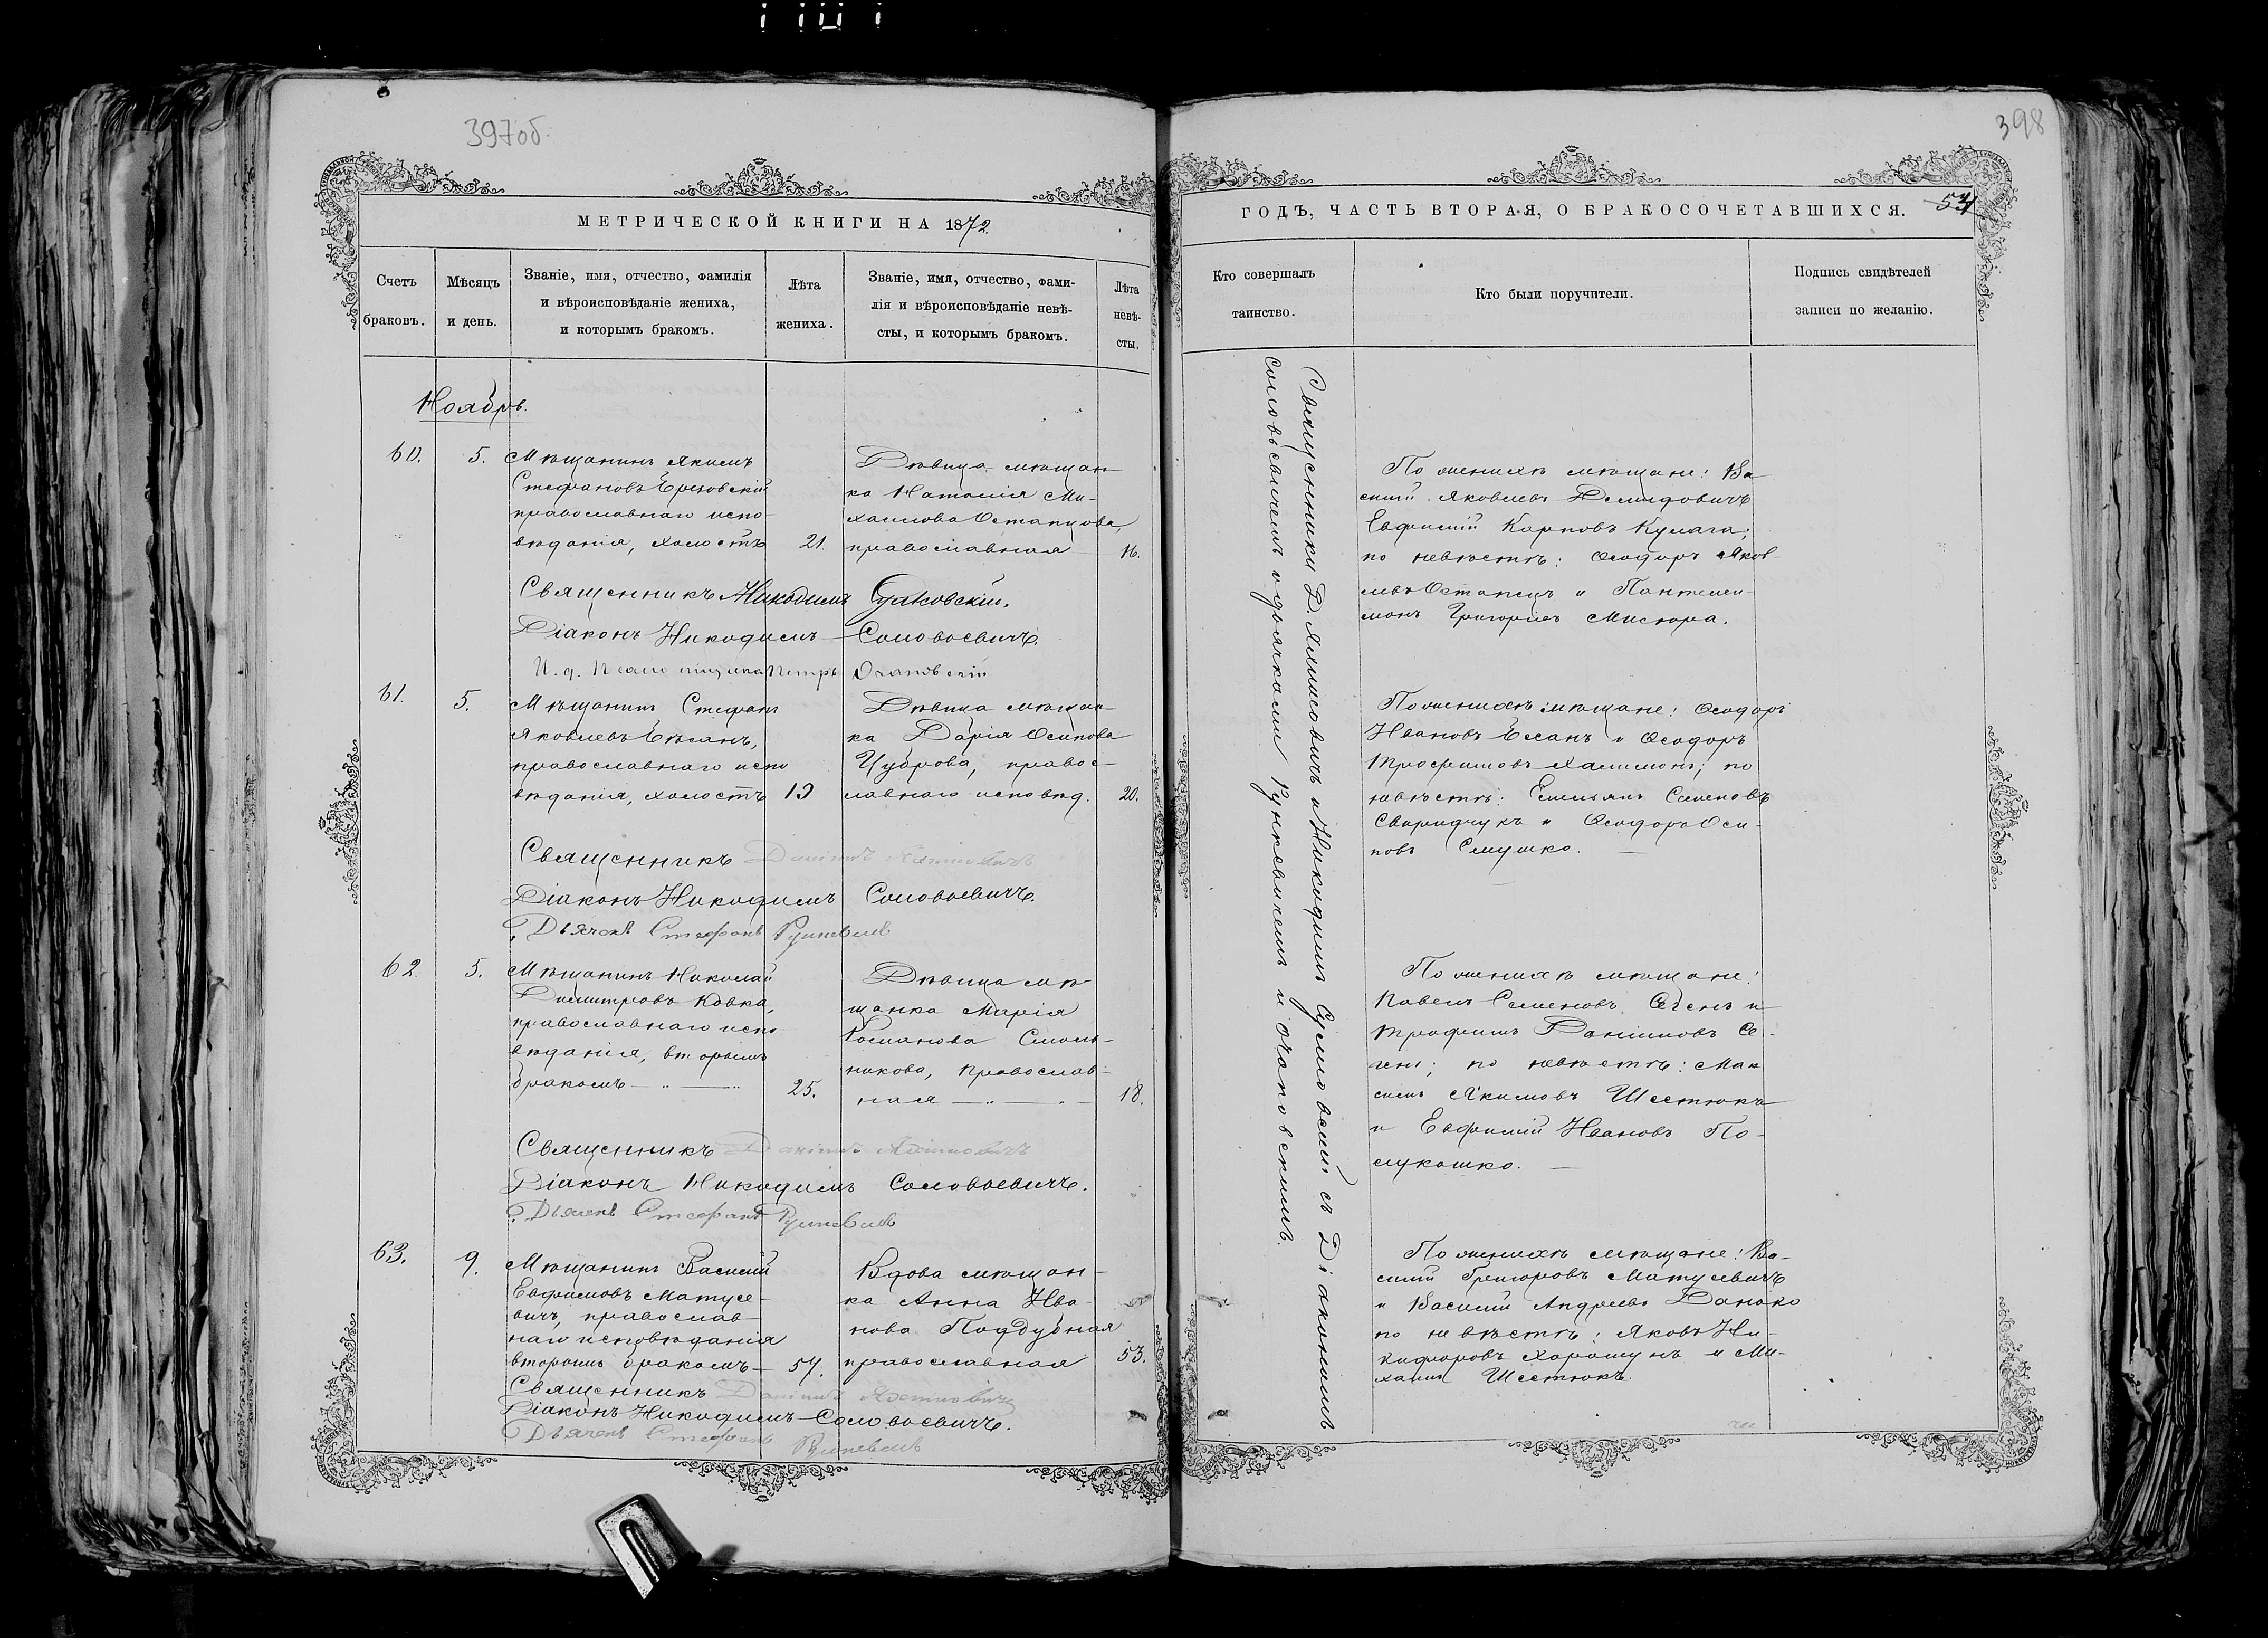 397об.
МЕТРИЧЕСКОЙ КНИГИ НА 1872
Счетъ
браковъ.
Мѣсяцъ
и день.
Званіе, имя, отчество, фамилія
и вѣроисповѣданіе жениха,
и которымъ бракомъ.
Лѣта
жениха.
Званіе, имя, отчество, фами-
лія и вѣроисповѣданіе невѣ-
сты, и которымъ бракомъ.
Лѣта
невѣ-
сты.
Ноябрь.
60.
5.
Мѣщанинъ Якимъ
Стефановъ
православнаго испо-
вѣданія, холостъ
21.
Дѣвица мѣщан-
ка Наталія Ми-
хаилова Остапцова,
православная
16.
Священникъ Никодимъ
Діаконъ Никодимъ Соловьевичъ.
И. д. Псаломщика Петръ Очаповскій
61.
5.
Мѣщанинъ Стефанъ
Яковлевъ
православнаго испо
вѣданія, холостъ
19
Дѣвица мѣщан-
ка Дарія Осипова
Цуброва, правос-
лавнаго исповѣд.
20.
Священникъ Даніилъ
Діаконъ Никодимъ Соловьевичъ.
Дьячекъ Стефанъ Рункевичъ
62.
5.
Мѣщанинъ Николай
Димитровъ Ковка,
православнаго испо-
вѣданія, вторымъ
бракомъ
25.
Дѣвица мѣ-
щанка Марія
Романова Смоль-
никова, православ-
ная
18.
Священникъ Даніилъ
Діаконъ Никодимъ Соловьевичъ.
Дьячекъ Стефанъ Рункевичъ
63.
9.
Мѣщанинъ Василій
Евфимовъ Матусе-
вичъ, православ-
наго исповѣданія
вторымъ бракомъ
57.
Вдова мѣщан-
ка Анна Ива-
нова Поддубная
православная
53.
Священникъ Даніилъ
Діаконъ Никодимъ Соловьевичъ.
Дьячекъ Стефанъ Рункевичъ
398
ГОДЪ, ЧАСТЬ ВТОРАЯ, О БРАКОСОЧЕТАВШИХСЯ.
Кто совершалъ
таинство.
Кто были поручители.
Подпись свидѣтелей
записи по желанію.
Священники Д. и Никодимъ съ Діакономъ
Соловьевичемъ и дьячкомъ Рункевичемъ и Очаповскимъ.
По женихѣ мѣщане: Ва-
силій Яковлевъ Демидовичъ
Евфимій Карповъ Кулага;
по невѣстѣ: Ѳеодоръ Яков-
левъ Остапецъ и Пантелей-
монъ Григорьевъ Мисюра.
По женихѣ мѣщане: Ѳеодоръ
Ивановъ и Ѳеодоръ
Трофимовъ Халимонъ; по
невѣстѣ: Емельянъ Семеновъ
Свиридчукъ и Ѳеодоръ Оси-
повъ Семушко.
По женихѣ мѣщане:
Павелъ Семеновъ и
Трофимъ Даніиловъ
по невѣстѣ: Мак
симъ Якимовъ Шестюкъ
и Евфимій Ивановъ По-
лукошко.
По женихѣ мѣщане: Ва-
силій Григоровъ Матусевичъ
и Василій Андреевъ Данько
по невѣстѣ: Яковъ Ни-
кифоровъ Харошунъ и Ми-
хаилъ Шестюкъ.